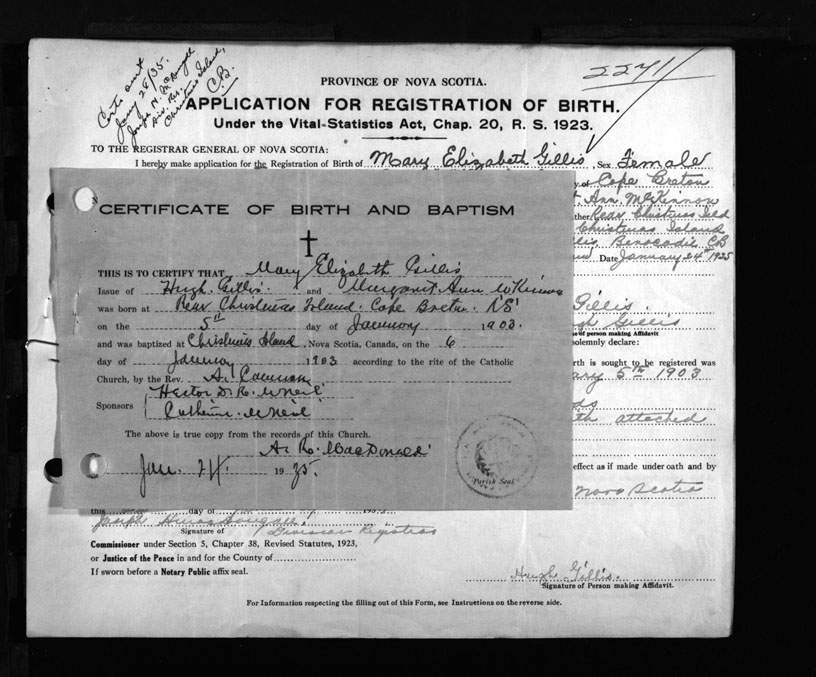 Certs sent
Jany 28/35.
Joseph H. McDougall
Div. Reg.
Christmas Island,
C.B.
2271
PROVINCE OF NOVA SCOTIA.
APPLICATION FOR REGISTRATION OF BIRTH.
Under the Vital Statistics Act, Chap. 20, R. S. 1923.
TO THE REGISTRAR GENERAL OF NOVA SCOTIA:
I hereby make application for the Registration of Birth of Mary Elizabeth Gillis, Sex Female
y of Cape Breton
Ann McKinnon
ther Rear Christmas Isld
Christmas Island
llis, Benacadie, CB
Date January 24th 1935
Gillis.
gh Gillis
e of person making Affidavit
solemnly declare:
irth is sought to be registered was
ary 5th 1903
ds
th attached
effect as if made under oath and by
Nova Scotia
CERTIFICATE OF BIRTH AND BAPTISM
THIS IS TO CERTIFY THAT Mary Elizabeth Gillis
Issue of Hugh Gillis and Margaret Ann McKinnon
was born at Rear Christmas Island. Cape Breton. N.S.
on the 5th day of January 1903.
and was baptized at Christmas Island, Nova Scotia, Canada, on the 6
day of January 1903 according to the rite of the Catholic
Church, by the Rev. A. Cameron
Sponsors Hector D. R. McNeil
Catherine McNeil
The above is true copy from the records of this Church.
A. R. MacDonald
Jan. 24. 1935.
Parish Seal
this day of 193
Joseph H. McDougall
Signature of Division Registrar
Commissioner under Section 5, Chapter 38, Revised Statutes, 1923,
or Justice of the Peace in and for the County of
If sworn before a Notary Public affix seal.
Hugh Gillis.
Signature of Person making Affidavit.
For Information respecting the filling out of this Form, see Instructions on the reverse side.